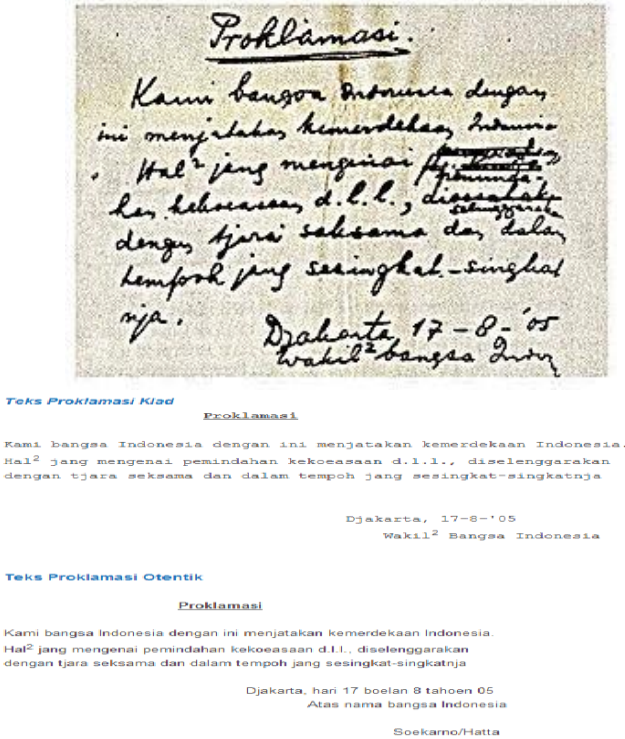 Proklamasi.
Kami bangsa Indonesia dengan
ini menjatakan kemerdekaan Indonesia
Hal² jang mengenai
peminda-
han kekoeasaan d.l.l.,
diselenggarakan
dengan tjara saksama dan dalam
tempoh jang sesingkat-singkat
nja.
Djakarta, 17-8-'05
Wakil² bangsa Indon
Teks Proklamasi Klad
Proklamasi
Kami bangsa Indonesia dengan ini menjatakan kemerdekaan Indonesia.
Hal² jang mengenai pemindahan kekoeasaan d.l.l., diselenggarakan
dengan tjara seksama dan dalam tempoh jang sesingkat-singkatnja
Djakarta, 17-8-'05
Wakil² Bangsa Indonesia
Teks Proklamasi Otentik
Proklamasi
Kami bangsa Indonesia dengan ini menjatakan kemerdekaan Indonesia.
Hal² jang mengenai pemindahan kekoeasaan d.l.l., diselenggarakan
dengan tjara seksama dan dalam tempoh jang sesingkat-singkatnja
Djakarta, hari 17 boelan 8 tahoen 05
Atas nama bangsa Indonesia
Soekarno/Hatta